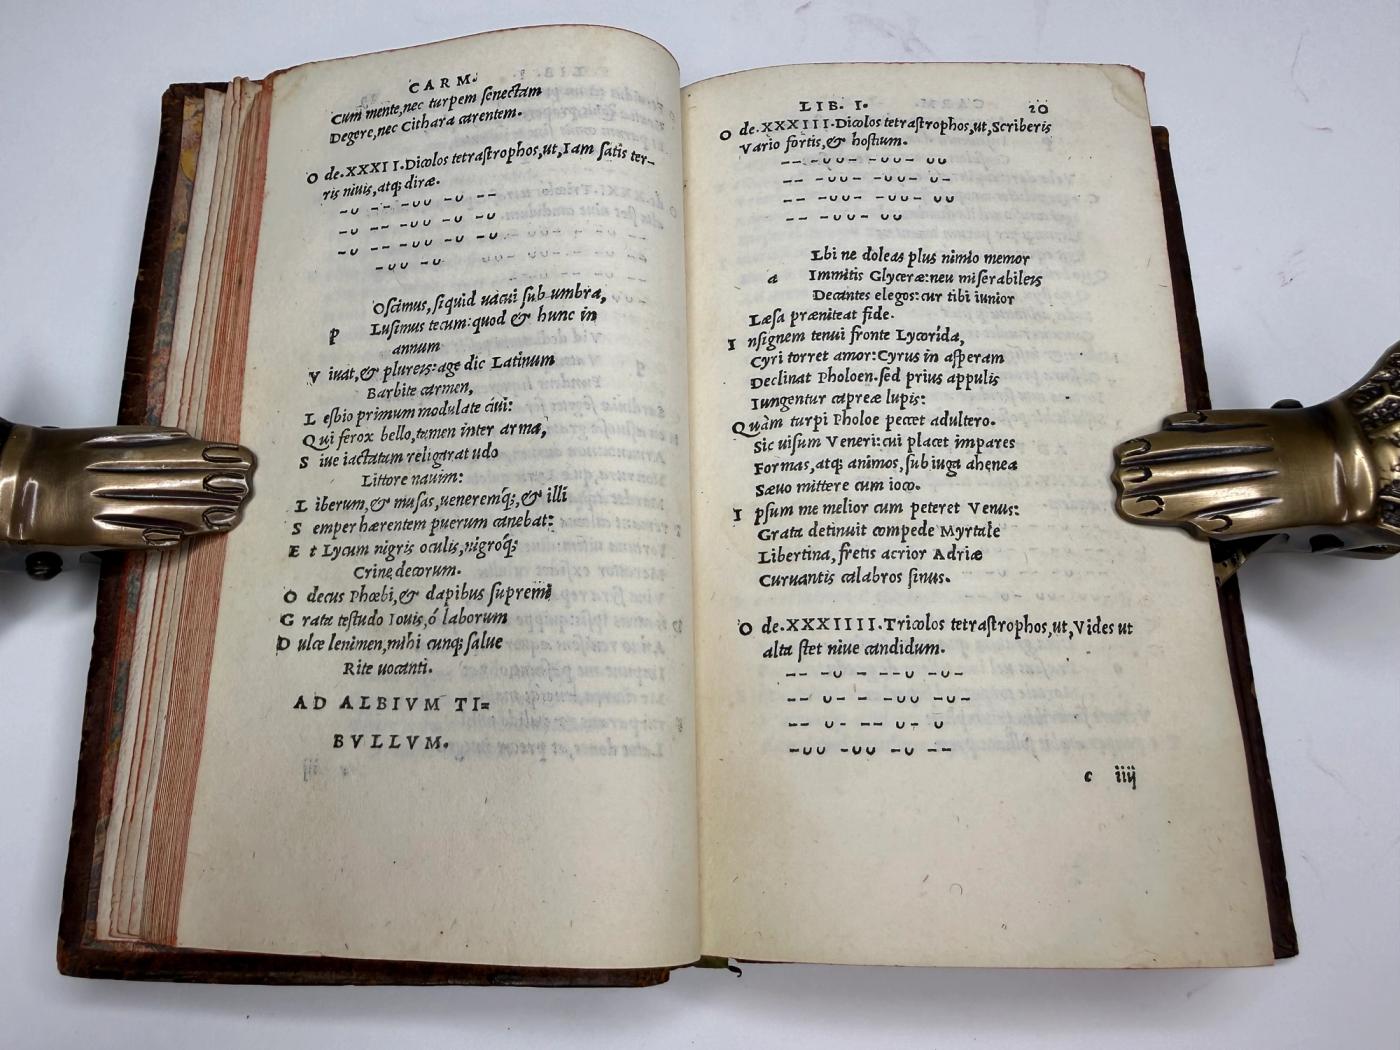 CARM.
Cum mente, nec turpem senectam
Degere, nec Cithara carentem.
O de.XXXII.Dicolos tetrastrophos,ut,Iam satis ter-
ris niuis,atq; diræ.
-u -- -uu -u --
-u -- -uu -u --
-u -- -uu -u --
-uu -u
Oscimus, siquid uacui sub umbra,
p Lusimus tecum: quod & hunc in
annum
V iuat,& plureis: age dic Latinum
Barbite carmen,
L esbio primum modulate ciui:
Q ui ferox bello, tamen inter arma,
S iue iactatam religarat udo
Littore nauim:
L iberum,& musas,ueneremq́;,& illi
S emper hærentem puerum canebat:
E t Lycum nigris oculis,nigroq́;
Crine decorum.
O decus Phœbi,& dapibus supremi
G rata testudo Iouis,ó laborum
D ulce lenimen,mihi cunq; salue
Rite uocanti.
AD ALBIVM TI=
BVLLVM.
LIB. I. 20
O de.XXXIII.Dicolos tetrastrophos,ut,Scriberis
Vario fortis,& hostium.
-- -uu- -uu- uu
-- -uu- -uu- u-
-- -uu- -uu- uu
-- -uu- uu
Lbi ne doleas plus nimio memor
a Immitis Glyceræ:neu miserabileis
Decantes elegos:cur tibi iunior
Læsa præniteat fide.
I nsignem tenui fronte Lycorída,
Cyri torret amor:Cyrus in asperam
Declinat Pholoen.sed prius appulis
Iungentur capreæ lupis:
Quàm turpi Pholoe peccet adultero.
Sic uisum Veneri:cui placet impares
Formas,atq; animos,sub iuga ahenea
Sæuo mittere cum ioco.
I psum me melior cum peteret Venus:
Grata detinuit compede Myrtale
Libertina,fretis acrior Adriæ
Curuantis calabros sinus.
O de.XXXIIII.Tricolos tetrastrophos,ut,Vides ut
alta stet niue candidum.
-- -u - --u -u-
-- u- -- uu -u-
-- u- -- u- u
-uu -uu -u --
c iiij